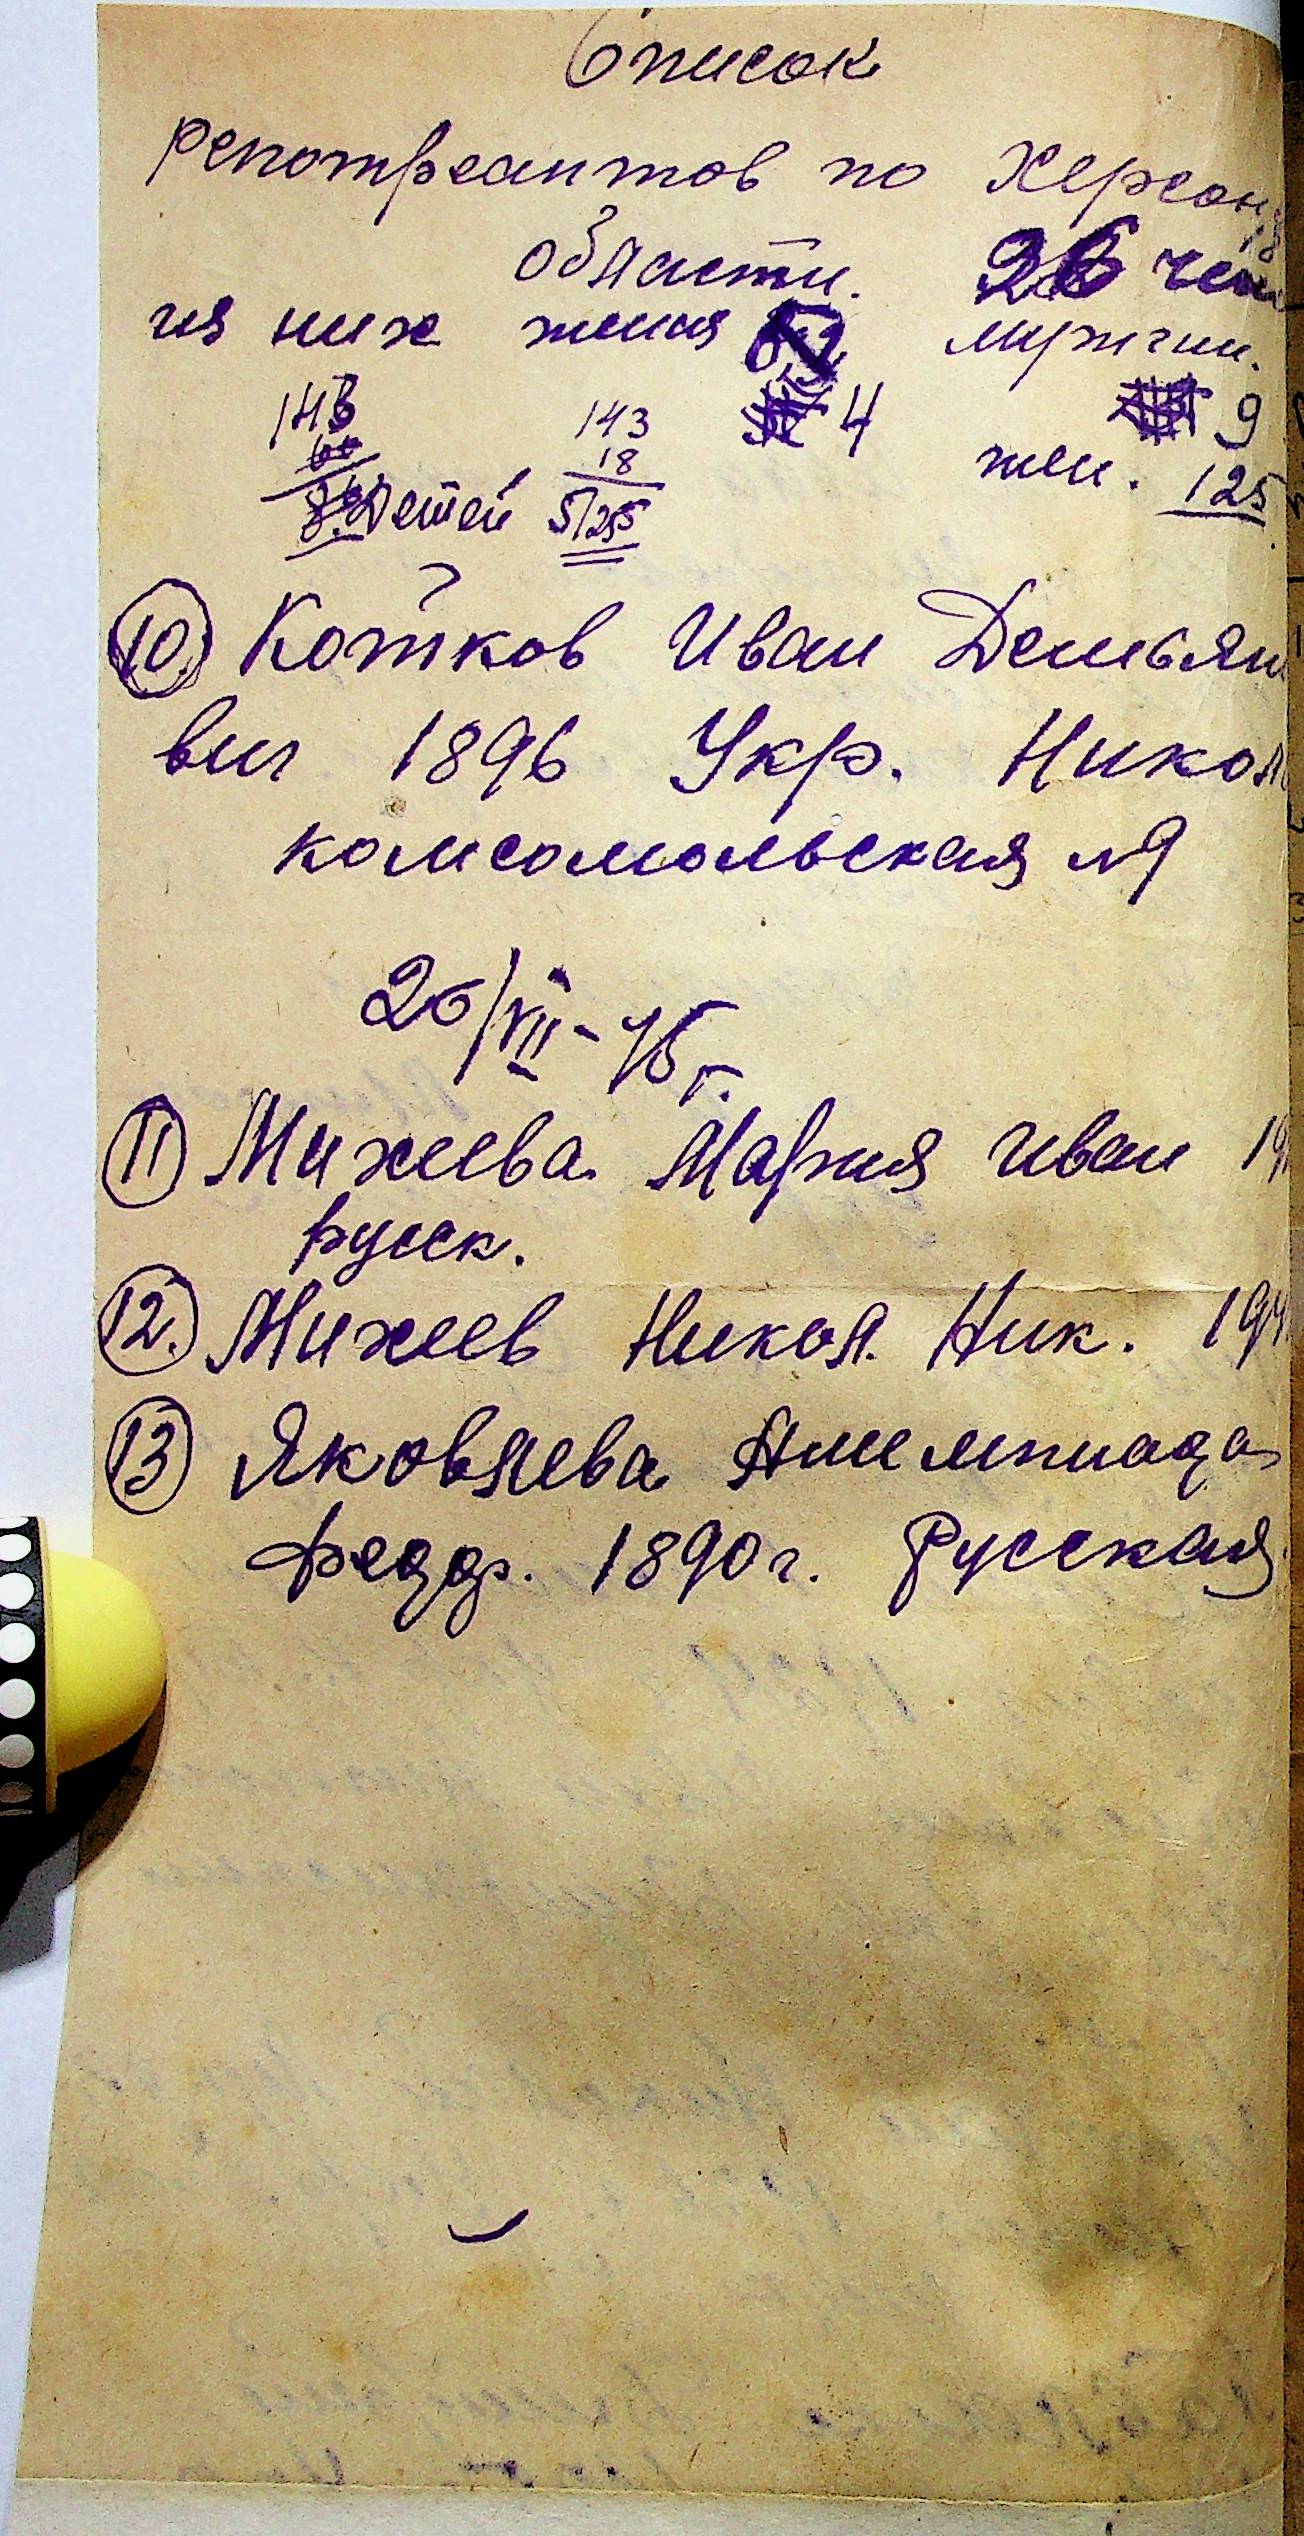 Список
репотреантов по Херсон
области. 26 чел
из них женщ мужчин.
143 143 4 9
18 жен. 125
Детей 5/255
10. Котков Иван Демьян
вич 1896 Укр. Никол
комсомольская №9
26/VII-45 г.
11 Михеева Мария Иван 19
русск.
12. Михеев Никол. Ник. 194
13 Яковлева
Федор. 1890 г. Русская